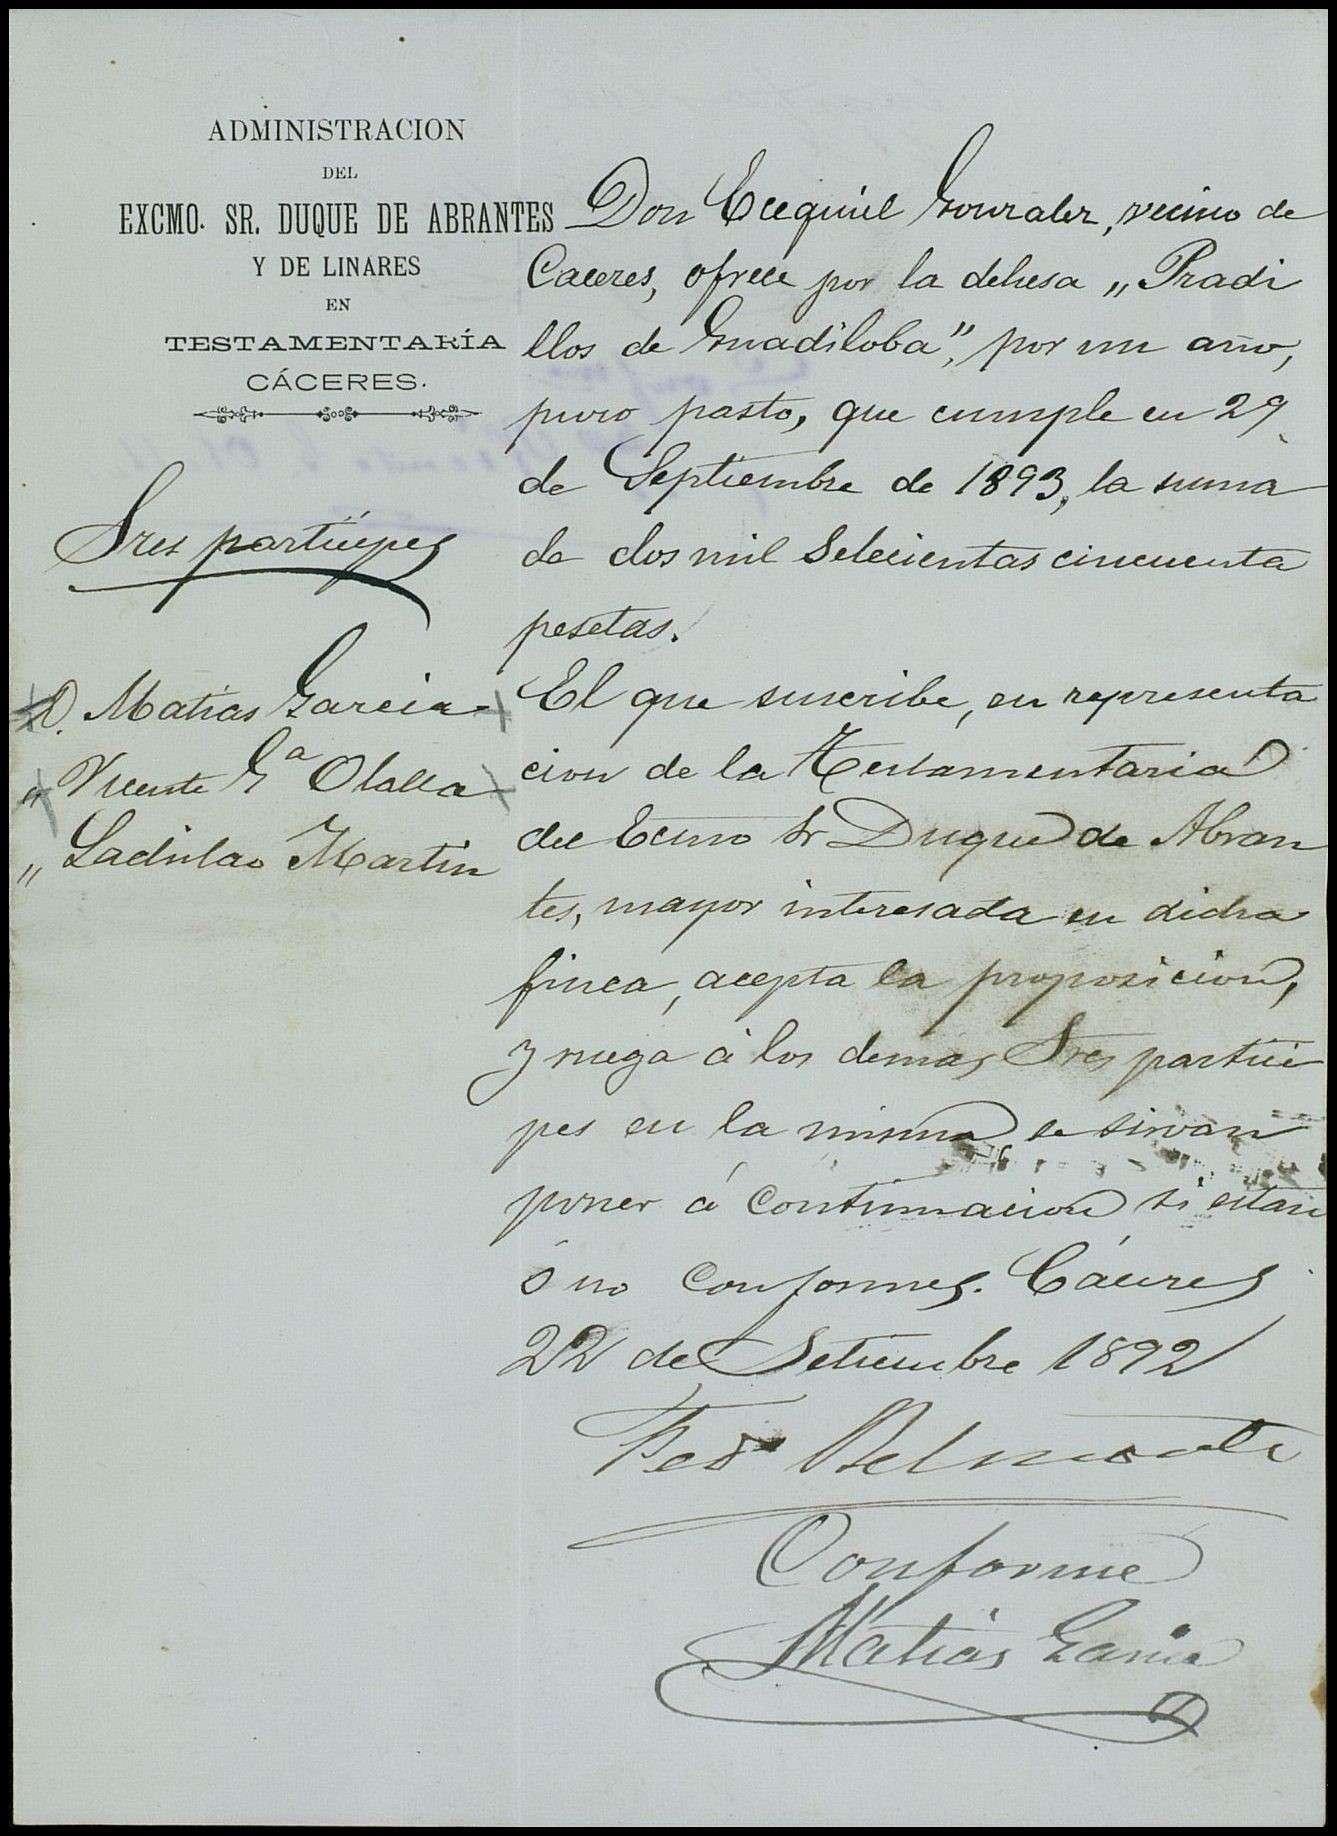 ADMINISTRACION
DEL
EXCMO. SR. DUQUE DE ABRANTES
Y DE LINARES
EN
TESTAMENTARÍA
CÁCERES.
Sres partícipes
D. Matias Garcia
„ Vicente Gª Olalla
„ Ladislao Martin
Don Ecequiel Gonzalez, vecino de
Caceres, ofrece por la dehesa „Pradi
llos de Guadiloba”, por un año,
puro pasto, que cumple en 29
de Septiembre de 1893, la suma
de dos mil setecientas cincuenta
pesetas.
El que suscribe, en representa
cion de la Testamentaria
del Ecmo Sr Duque de Abran
tes, mayor interesada en dicha
finca, acepta la proposicion,
y ruega á los demas Sres partici
pes en la misma se sirvan
poner á continuacion si estan
ó no conformes. Cáceres
22 de Setiembre 1892
Fedº Belmonte
Conforme
Matias Garcia